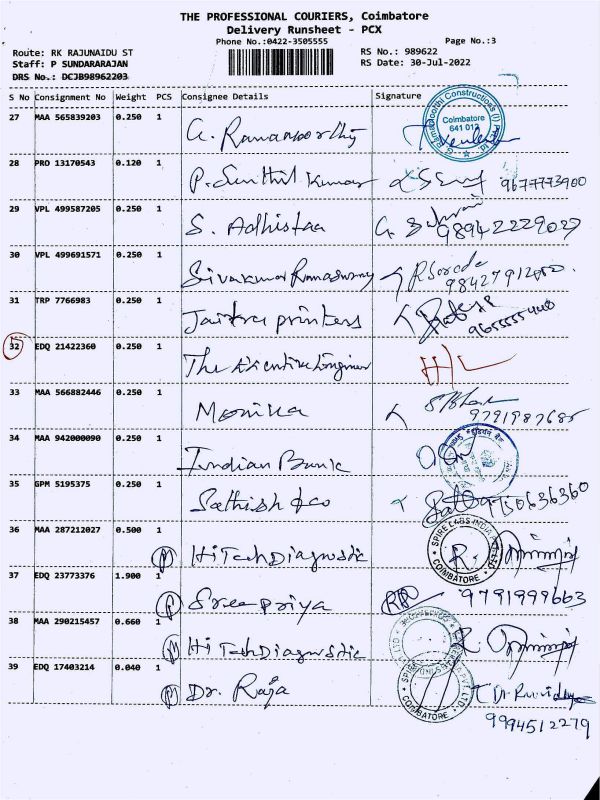 THE PROFESSIONAL COURIERS, Coimbatore
Delivery Runsheet - PCX
Phone No.:0422-3505555
Page No.:3
Route: RK RAJUNAIDU ST
RS No.: 989622
Staff: P SUNDARARAJAN
RS Date: 30-Jul-2022
DRS No.: DCJB98962203
S No Consignment No Weight PCS Consignee Details Signature
27 MAA 565839203 0.250 1
Coimbatore 641 012
28 PRO 13170543 0.120 1 P. Senthil Kumar 9677773900
29 VPL 499587205 0.250 1 S. Adhistaa
98942229027
30 VPL 499691571 0.250 1 Sivakumar Ramaswamy
31 TRP 7766983 0.250 1 Jaitra printers
32 EDQ 21422360 0.250 1 The Executive Engineer
33 MAA 566882446 0.250 1 Monika
9791987685
34 MAA 942000090 0.250 1 Indian Bank
35 GPM 5195375 0.250 1 Sathish & co 9750636360
36 MAA 287212027 0.500 1 HiTech Diagnostic
SPIRE LABS INDIA COIMBATORE
37 EDQ 23773376 1.900 1 Sreepriya 9791999663
38 MAA 290215457 0.660 1 HiTech Diagnostic
39 EDQ 17403214 0.040 1 Dr. Raja
COIMBATORE
9994512279